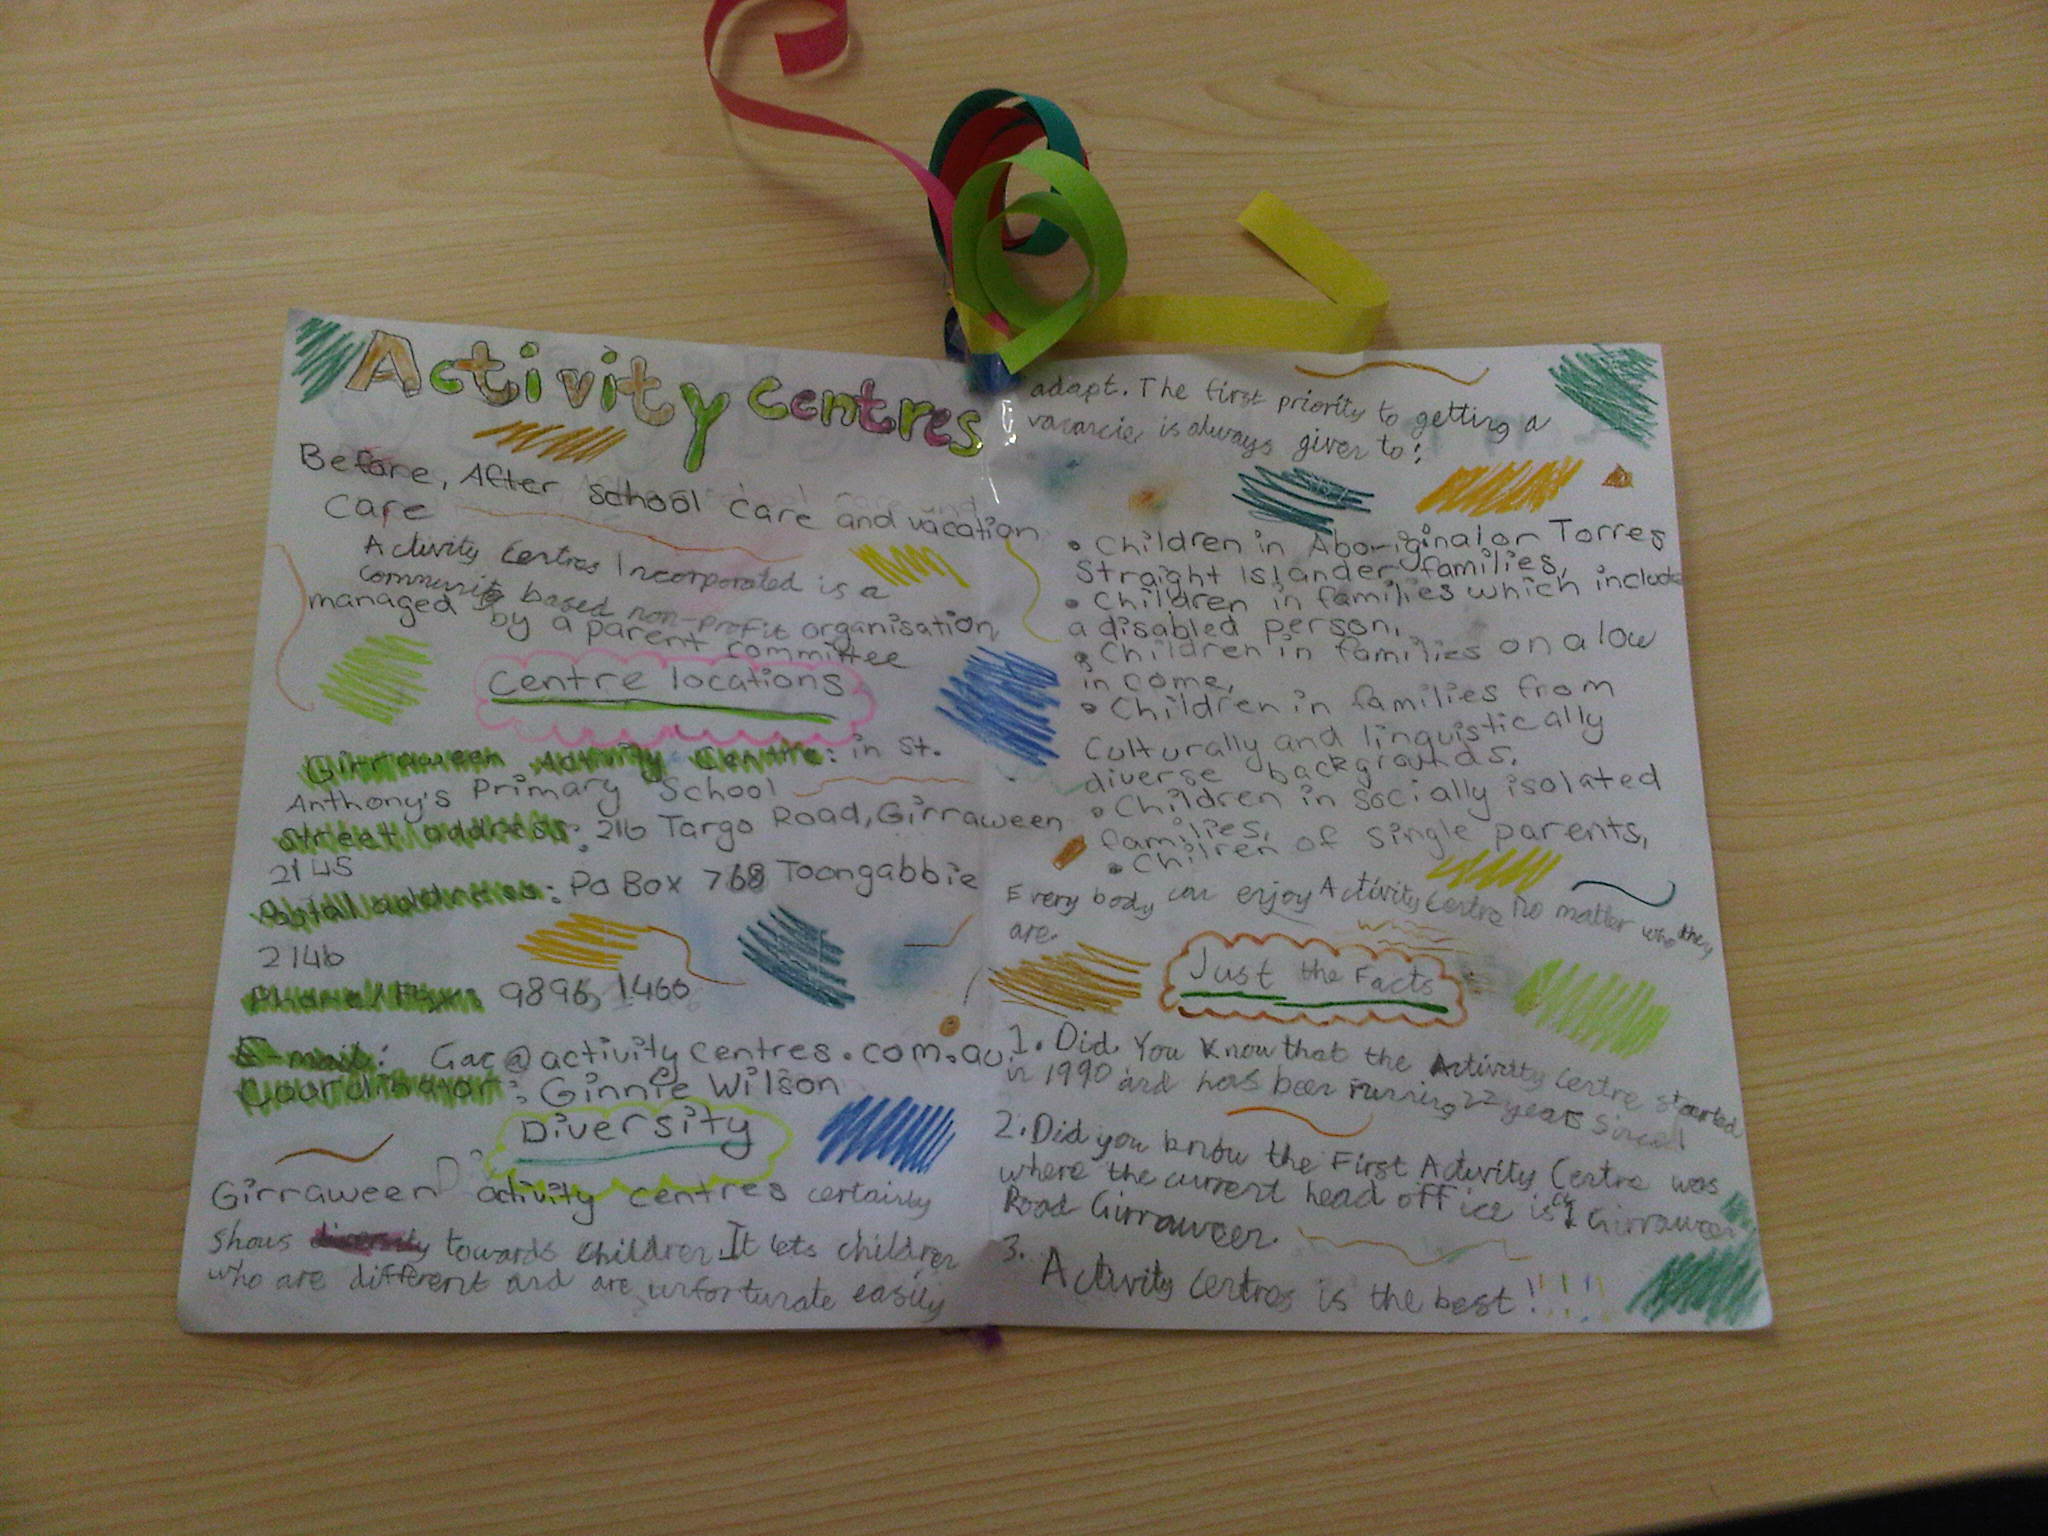 Activity Centres
Before, After School Care and vacation
Care
Activity Centres Incorporated is a
community based non-profit organisation
managed by a parent committee
Centre locations
Girraween Activity Centre: in St.
Anthony's Primary School
Street address: 216 Targo Road, Girraween
2145
Postal address: Po Box 768 Toongabbie
2146
Phone/Fax: 9896 1466
E-mail: Gac@activitycentres.com.au
Coordinator: Ginnie Wilson
Diversity
Girraween activity centres certainly
shows diversity towards children. It lets children
who are different and are unfortunate easily
adapt. The first priority to getting a
vacancie is always given to:
• Children in Aboriginal or Torres
Straight Islander families,
• Children in families which include
a disabled person,
• Children in families on a low
in come,
• Children in families from
Culturally and linguistically
diverse backgrounds,
• Children in Socially isolated
families,
• Children of single parents,
Every body can enjoy Activity Centre no matter who they
are.
Just the Facts
1. Did You Know that the Activity Centre started
in 1990 and has been running 22 years
2. Did you know the First Activity Centre was
where the current head office is Girraween
Road Girraween.
3. Activity Centres is the best!!!!!